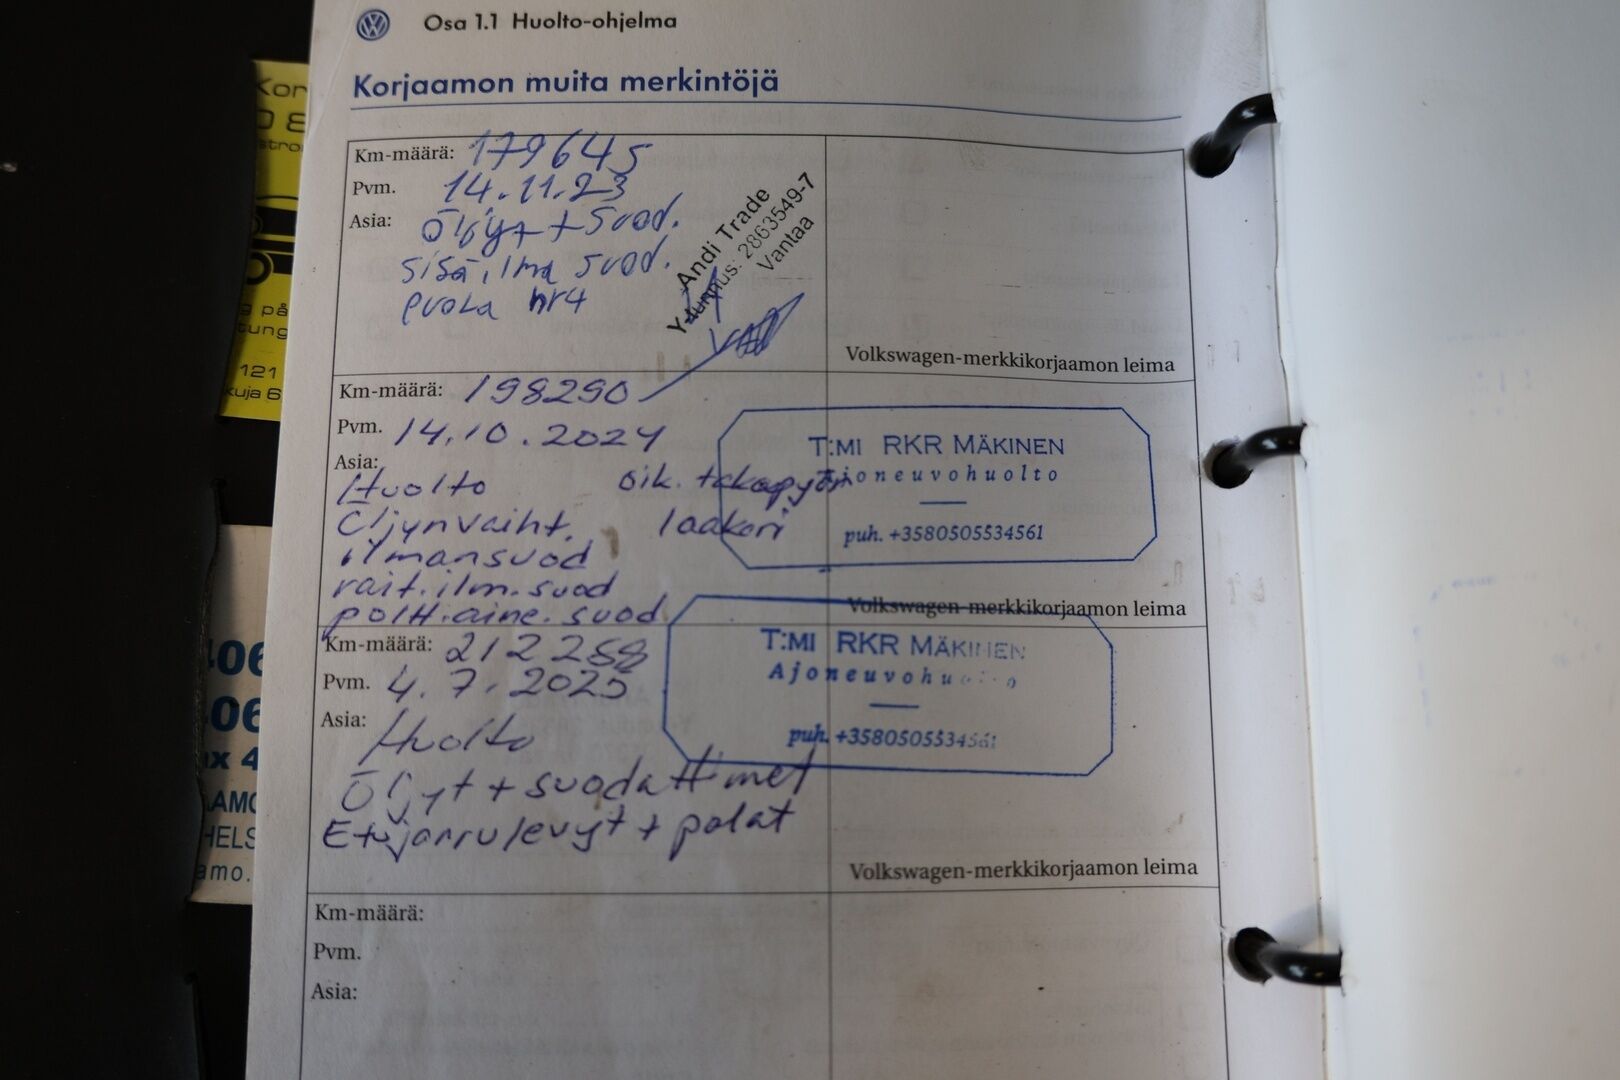 Osa 1.1 Huolto-ohjelma
Korjaamon muita merkintöjä
Km-määrä: 179645
Pvm. 14.11.23
Asia: Öljyt + Suod.
sisä, ilma suod.
puola nr4
Andi Trade
Y-tunnus: 2863549-7
Vantaa
Volkswagen-merkkikorjaamon leima
Km-määrä: 198290
Pvm. 14.10.2024
Asia:
Huolto oik. takapyör.
Öljynvaiht. laakeri
ilmansuod
rait.ilm.suod
poltt.aine.suod
T:MI RKR MÄKINEN
Ajoneuvohuolto
puh. +3580505534561
Volkswagen-merkkikorjaamon leima
Km-määrä: 212288
Pvm. 4.7.2025
Asia:
Huolto
Öljyt + suodattimet
Etujarrulevyt + palat
T:MI RKR MÄKINEN
Ajoneuvohuolto
puh. +3580505534561
Volkswagen-merkkikorjaamon leima
Km-määrä:
Pvm.
Asia:
121
kuja 6